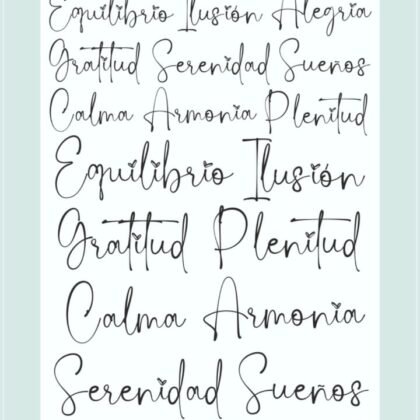 Equilibrio Ilusión Alegria
Gratitud Serenidad Sueños
Calma Armonia Plenitud
Equilibrio Ilusión
Gratitud Plenitud
Calma Armonia
Serenidad Sueños